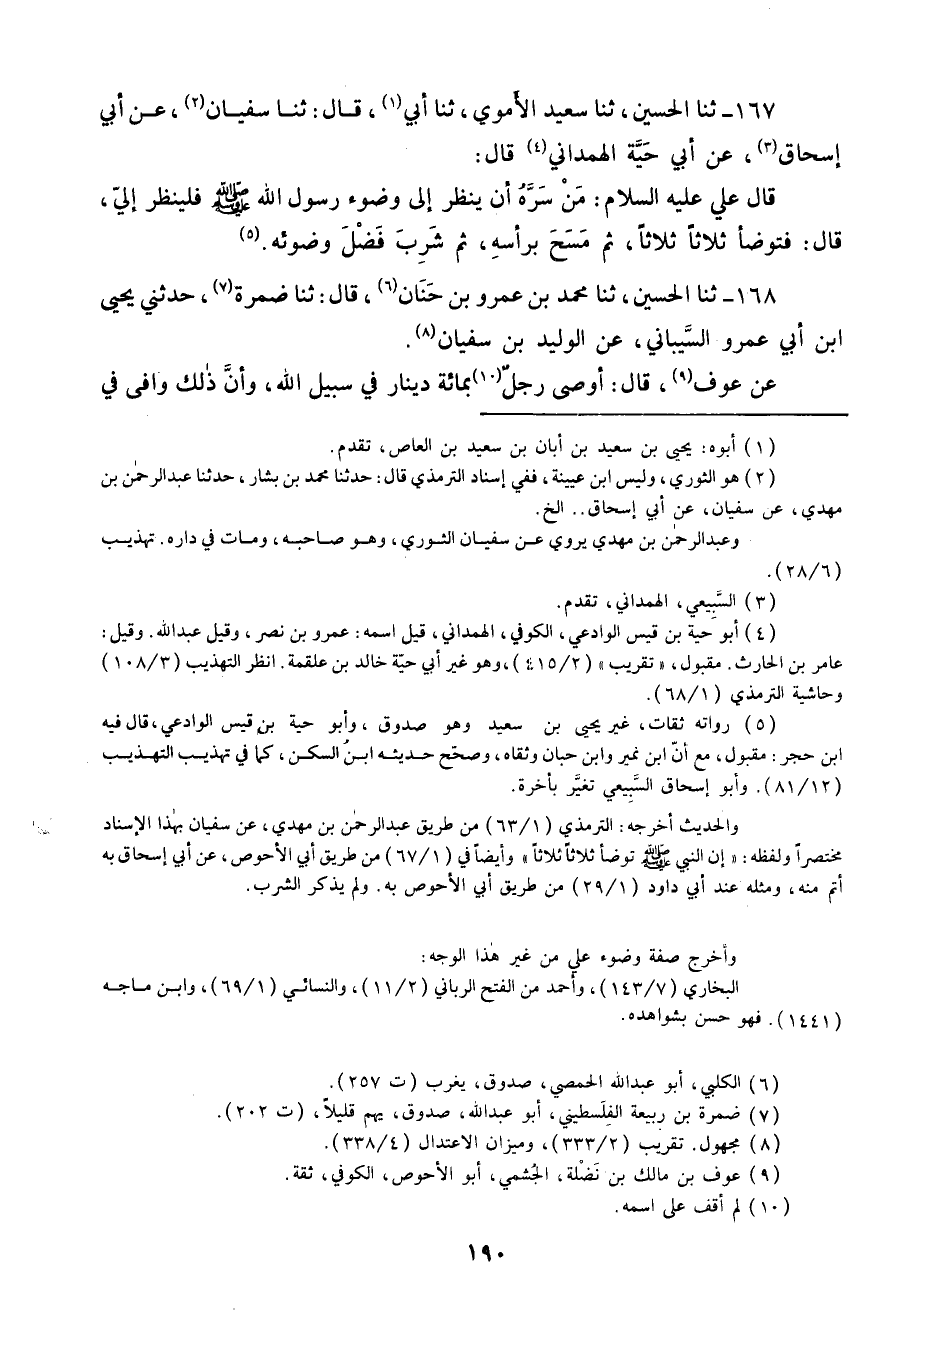 ١٦٧ـ ثنا الحسين، ثنا سعيد الأموي، ثنا أبي(١)، قـال: ثنـا سفيـان(٢)، عـن أبي
إسحاق(٣)، عن أبي حَيَّة الهمداني(٤) قال:
قال علي عليه السلام: مَنْ سَرَّهُ أن ينظر إلى وضوء رسول الله ﷺ فلينظر إليّ،
قال: فتوضأ ثلاثاً ثلاثاً، ثم مَسَحَ برأسهِ، ثم شَرِبَ فَضْلَ وضوئه.(٥)
١٦٨ـ ثنا الحسين، ثنا محمد بن عمرو بن حَنَان(٦)، قال: ثنا ضمرة(٧)، حدثني يحيى
ابن أبي عمرو السَّيباني، عن الوليد بن سفيان(٨).
عن عوف(٩)، قال: أوصى رجلٌ(١٠) بمائة دينار في سبيل الله، وأنَّ ذٰلك وافى في
(١) أبوه: يحيى بن سعيد بن أبان بن سعيد بن العاص، تقدم.
(٢) هو الثوري، وليس ابن عيينة، ففي إسناد الترمذي قال: حدثنا محمد بن بشار، حدثنا عبدالرحمٰن بن
مهدي، عن سفيان، عن أبي إسحاق.. الخ.
وعبدالرحمٰن بن مهدي يروي عـن سفيـان الثـوري، وهـو صـاحبـه، ومـات في داره. تهذيـب
(٢٨/٦).
(٣) السَّبِيعي، الهمداني، تقدم.
(٤) أبو حية بن قيس الوادعي، الكوفي، الهمداني، قيل اسمه: عمرو بن نصر، وقيل عبدالله. وقيل:
عامر بن الحارث. مقبول، «تقريب» (٤١٥/٢)، وهو غير أبي حيّة خالد بن علقمة. انظر التهذيب (١٠٨/٣)
وحاشية الترمذي (٦٨/١).
(٥) رواته ثقات، غير يحيى بن سعيد وهو صدوق، وأبو حية بن قيس الوادعي، قال فيه
ابن حجر: مقبول، مع أنّ ابن نمير وابن حبان وثقاه، وصحّح حـديثـه ابـنُ السكـن، كما في تهذيـب التهـذيـب
(٨١/١٢). وأبو إسحاق السَّبِيعي تغيَّر بأخرة.
والحديث أخرجه: الترمذي (٦٣/١) من طريق عبدالرحمٰن بن مهدي، عن سفيان بهٰذا الإسناد
مختصراً ولفظه: «إن النبي ﷺ توضأ ثلاثاً ثلاثاً» وأيضاً في (٦٧/١) من طريق أبي الأحوص، عن أبي إسحاق به
أتم منه، ومثله عند أبي داود (٢٩/١) من طريق أبي الأحوص به. ولم يذكر الشرب.
وأخرج صفة وضوء علي من غير هٰذا الوجه:
البخاري (١٤٣/٧)، وأحمد من الفتح الرباني (١١/٢)، والنسائـي (٦٩/١)، وابـن مـاجـه
(١٤٤١). فهو حسن بشواهده.
(٦) الكلبي، أبو عبدالله الحمصي، صدوق، يغرب (ت ٢٥٧).
(٧) ضمرة بن ربيعة الفِلَسطيني، أبو عبدالله، صدوق، يهم قليلاً، (ت ٢٠٢).
(٨) مجهول. تقريب (٣٣٣/٢)، وميزان الاعتدال (٣٣٨/٤).
(٩) عوف بن مالك بن نَضْلة، الجُشمي، أبو الأحوص، الكوفي، ثقة.
(١٠) لم أقف على اسمه.
١٩٠